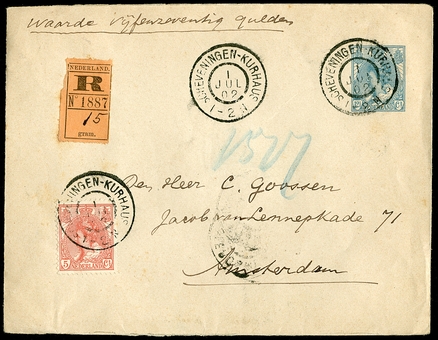 Waarde vijfenzeventig gulden
NEDERLAND.
R
No 1887
15
SCHEVENINGEN-KURHAUS
1
JUL
02
1-2N
SCHEVENINGEN-KURHAUS
1507
SCHEVENINGEN-KURHAUS
5 NEDERLAND Ct
Den Heer C. Goossen
Jacob van Lennepkade 71
Amsterdam